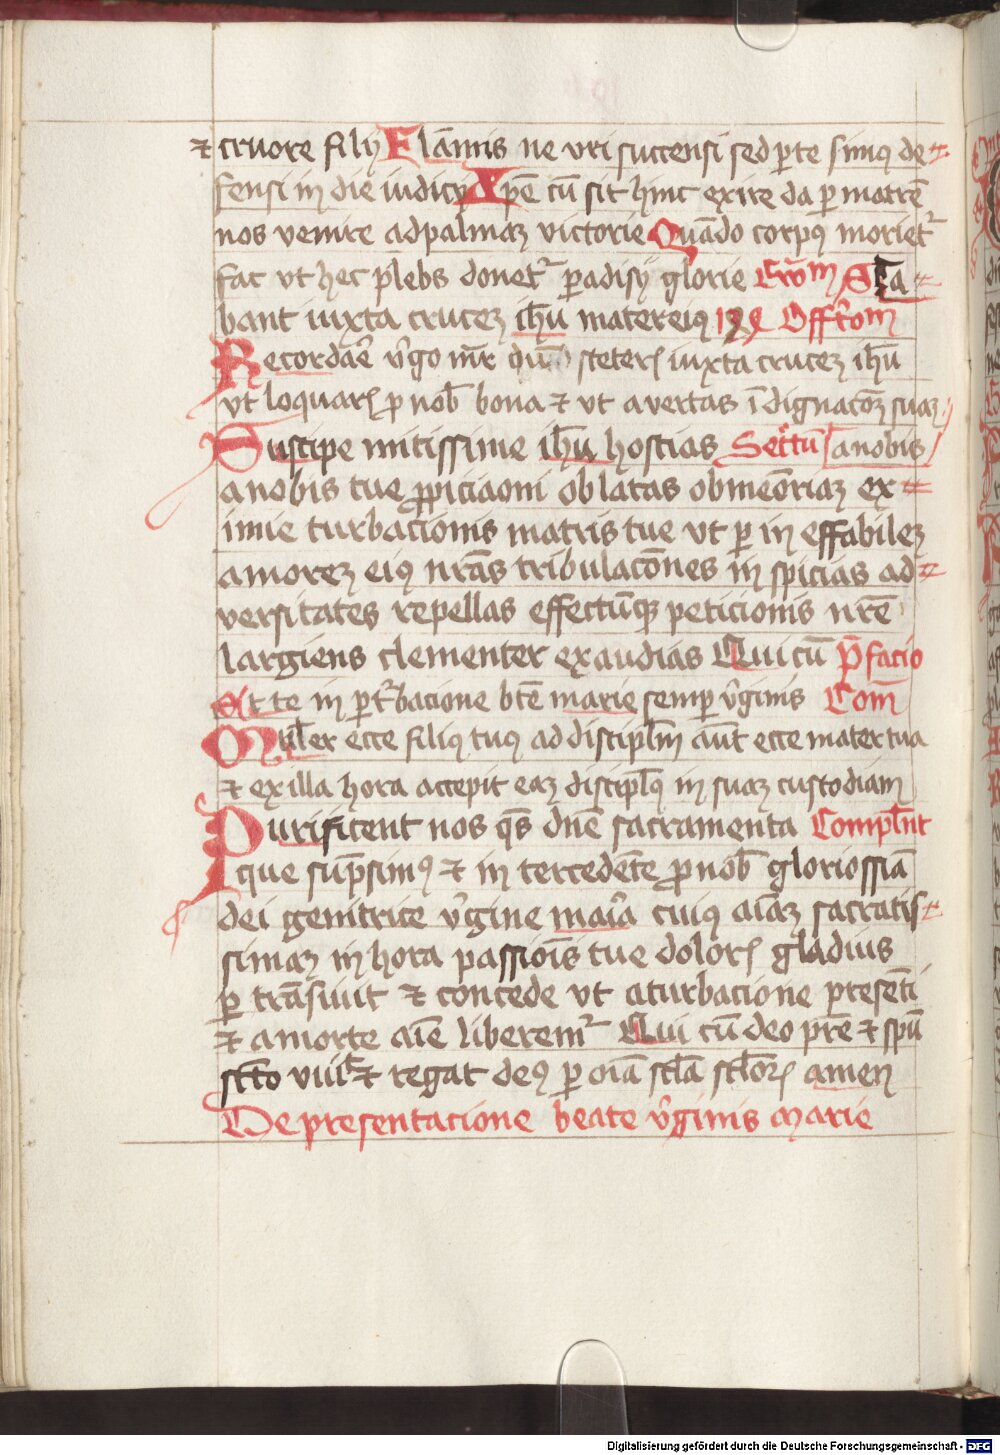 ⁊ cruore filij Flāmis ne vri succensi sed per te simꝰ de⸗
fensi in die iudicij Xpē cū sit hinc exire da per matrē
nos venire ad palmaꝫ victorie Quādo corpꝰ morietʳ
fac vt hec plebs donetʳ paradisij glorie Ewm Sta⸗
bant iuxta cruceꝫ ihū mater eiꝰ Offrom
Recordare v̄go mr̄ steteris iuxta cruceꝫ ihū
vt loquaris p nob bona ⁊ vt auertas īdignacōꝫ suaꝫ
Suscipe mitissime ihū hostias Secrtū a nobis
a nobis tue ꝓpiciaoni oblatas ob meōriaꝫ ex⸗
imie turbacionis matris tue vt per in effabileꝫ
amoreꝫ eiꝰ nrās tribulacōnes in spicias ad⸗
versitates repellas effectūqꝫ peticionis nrē
largiens clementer exaudias Qui cū Pfacio
Et te in pturbacione btē marie semp v̄ginis Com
Mulier ecce filiꝰ tuꝰ ad discipl̄m aūt ecce mater tua
⁊ ex illa hora accepit eaꝫ discipl̄ꝰ in suaꝫ custodiam
Purificent nos qs̄ dnē sacramenta Compl̄nt
que sūpsimꝰ ⁊ in tercedēte ꝓ nob gloriossiā
dei genitrice v̄gine maīa cuiꝰ aīaꝫ sacratis⸗
simaꝫ in hora passiōis tue doloris gladius
ꝑ trāsiuit ⁊ concede vt a turbacione presēti
⁊ a morte aīe liberemʳ Qui cū deo prē ⁊ spū
sc̄to viuit ⁊ regat deꝰ ꝑ oīa sc̄la sc̄loꝝ amen
De presentacione beate v̄ginis marie
Digitalisierung gefördert durch die Deutsche Forschungsgemeinschaft - DFG